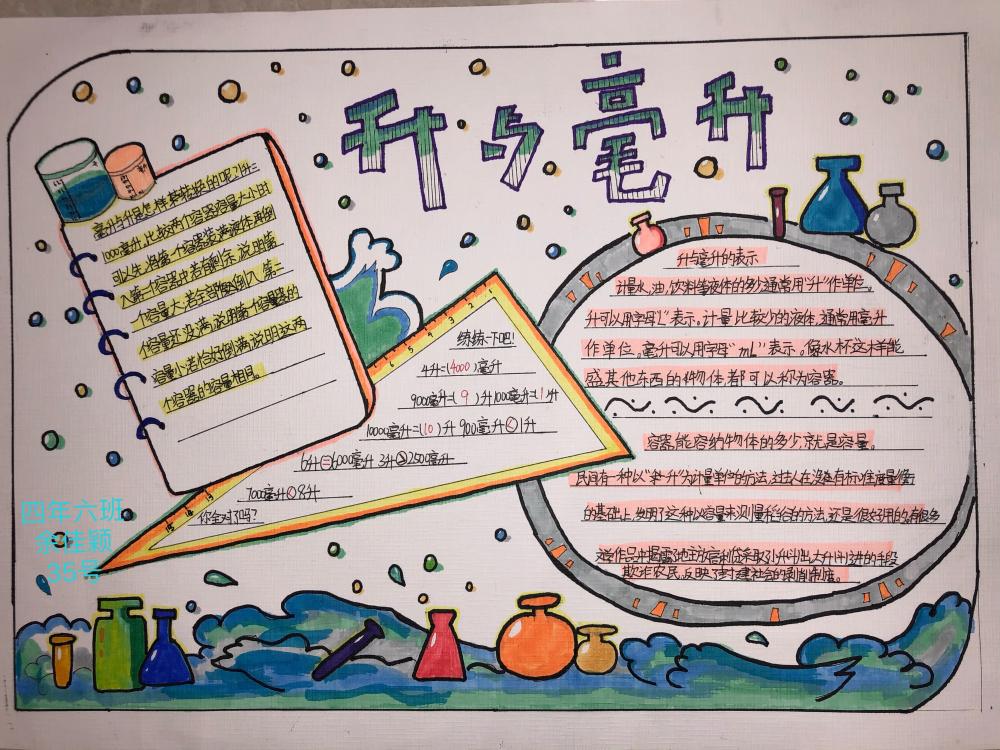 升与毫升
毫升与升是怎样来转换的呢?1升=
1000毫升,比较两个容器容量大小时
可以先将第一个容器装满液体再倒
入第二个容器中若有剩余,说明第一
个容量大,若全部倒入,第二
个容量还没满,说明第二个容器的
容量小若恰好倒满说明这两
个容器的容量相同。
练练一下吧!
4升=(4000)毫升
9000毫升=(9)升 1000毫升=(1)升
10000毫升=(10)升 900毫升<1升
6升=6000毫升 3升>2500毫升
700毫升<8升
你全对了吗?
升与毫升的表示
计量水、油、饮料等液体的多少通常用“升”作单位。
升可以用字母“L”表示。计量比较少的液体,通常用毫升
作单位。毫升可以用字母“mL”表示。像水杯这样能
盛其他东西的物体,都可以称为容器。
容器能容纳物体的多少就是容量。
民间有一种以“升”为计量单位的方法,过去人在没有标准度量衡
的基础上,发明了这种以容量来测量粮食的方法,还是很好用的。有很多
文学作品中揭露地主放高利贷采取小升出大升进的手段
欺诈农民,反映了封建社会的剥削制度。
四年六班
余佳颖
35号